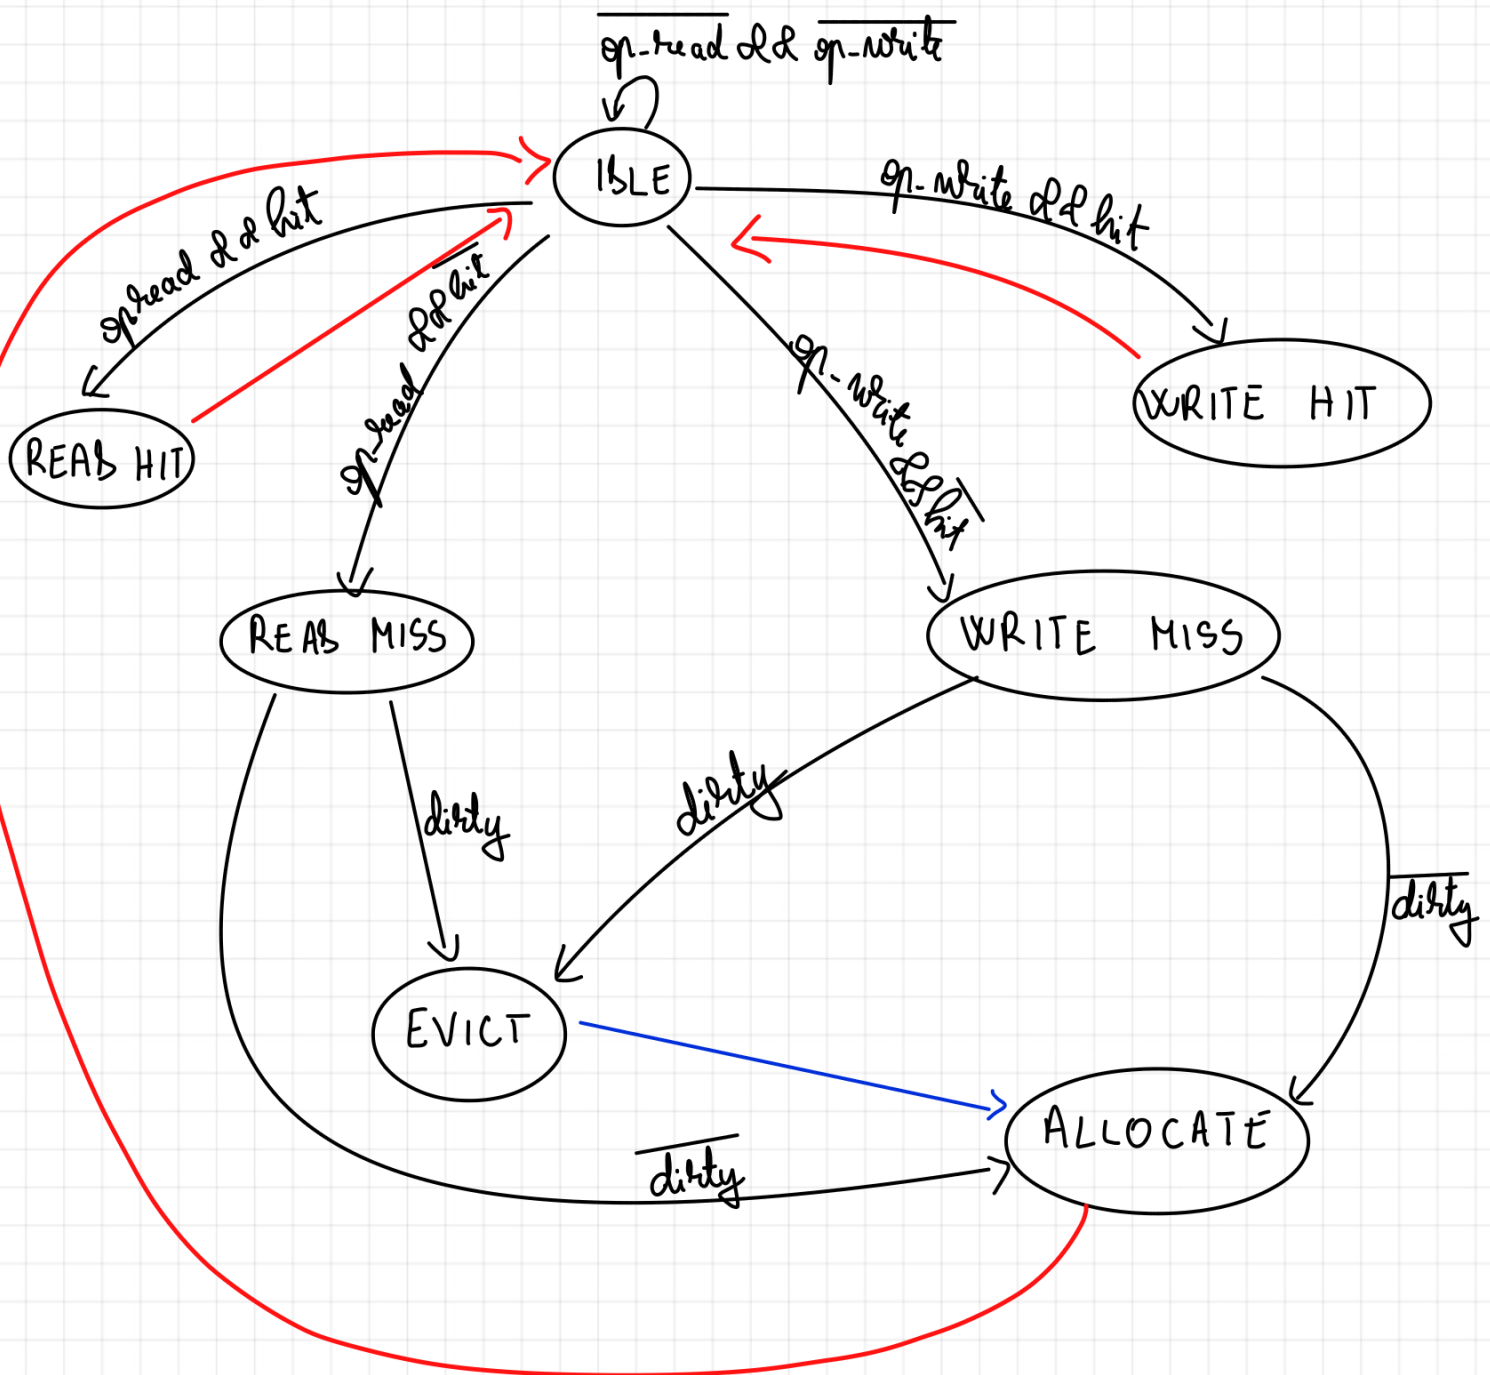 op-read && op-write
IDLE
op-write && hit
op read && hit
op-read && hit
op-write && hit
WRITE HIT
READ HIT
READ MISS
WRITE MISS
dirty
dirty
dirty
EVICT
ALLOCATE
dirty